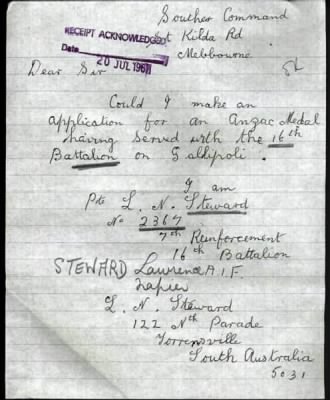 Souther Command
St Kilda Rd
Melbbourne
RECEIPT ACKNOWLEDGED
Date 20 JUL 1967
Dear Sir
Could I make an
application for an Anzac Medal
having served with the 16th
Battalion on Gallipoli.
I am
Pte L. N. Steward
No 2367
7th Reinforcement
16th Battalion
A.I.F.
STEWARD Lawrence
Napier
L. N. Steward
122 Nth Parade
Torrensville
South Australia
5031